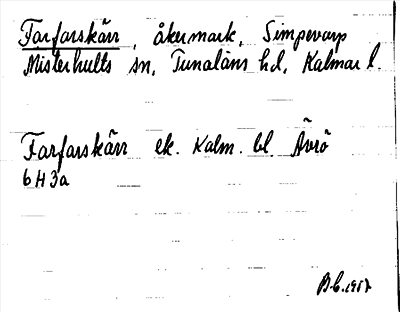 Farfarskärr, åkermark, Simpevarp
Misterhults sn, Tunaläns hd, Kalmar l.
Farfarskärr ek. Kalm. bl. Ävrö
6H3a
B.C. 1957